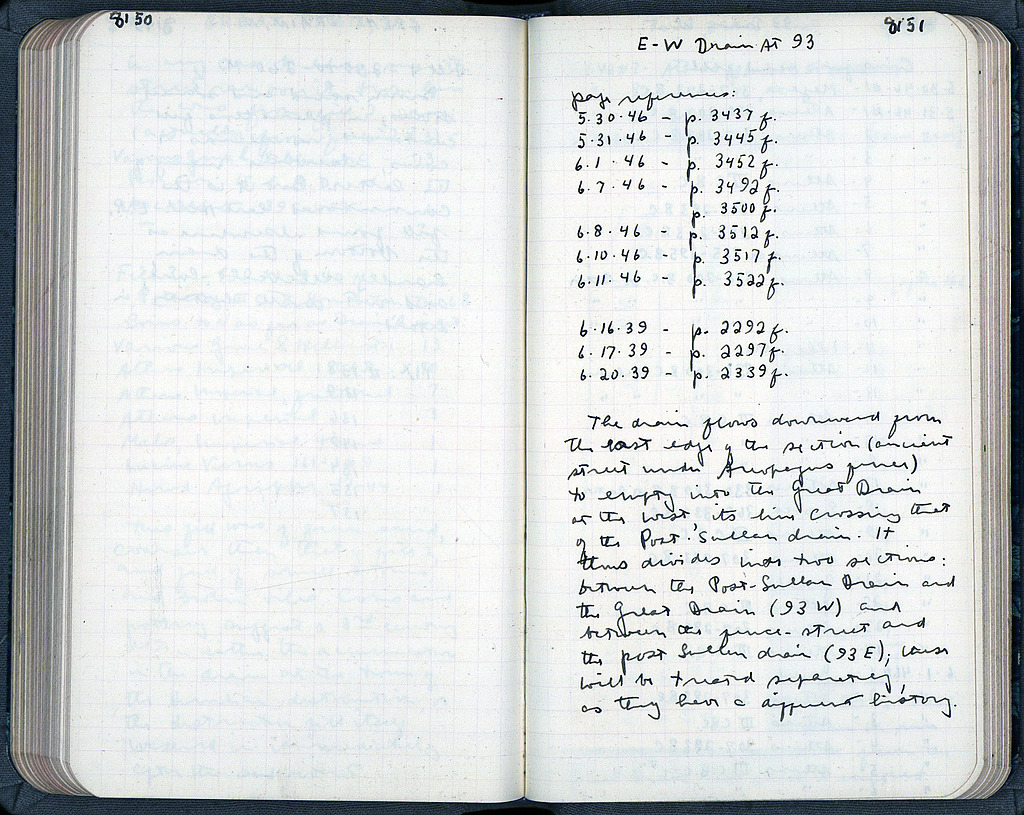 8150
8151
E-W Drain At 93
page references:
5.30.46 - p. 3437 f.
5.31.46 - p. 3445 f.
6.1.46 - p. 3452 f.
6.7.46 - p. 3492 f.
p. 3500 f.
6.8.46 - p. 3512 f.
6.10.46 - p. 3517 f.
6.11.46 - p. 3522 f.
6.16.39 - p. 2292 f.
6.17.39 - p. 2297 f.
6.20.39 - p. 2339 f.
The drain flows downward from
the east edge of the section (ancient
street under Areopagus)
to empty into the Great Drain
at the west, its line crossing that
of the Post-Sullan drain. It
thus divides into two sections:
between the Post-Sullan Drain and
the Great Drain (93 W) and
between the street and
the post Sullan drain (93 E);
will be treated separately,
as they have a different history.